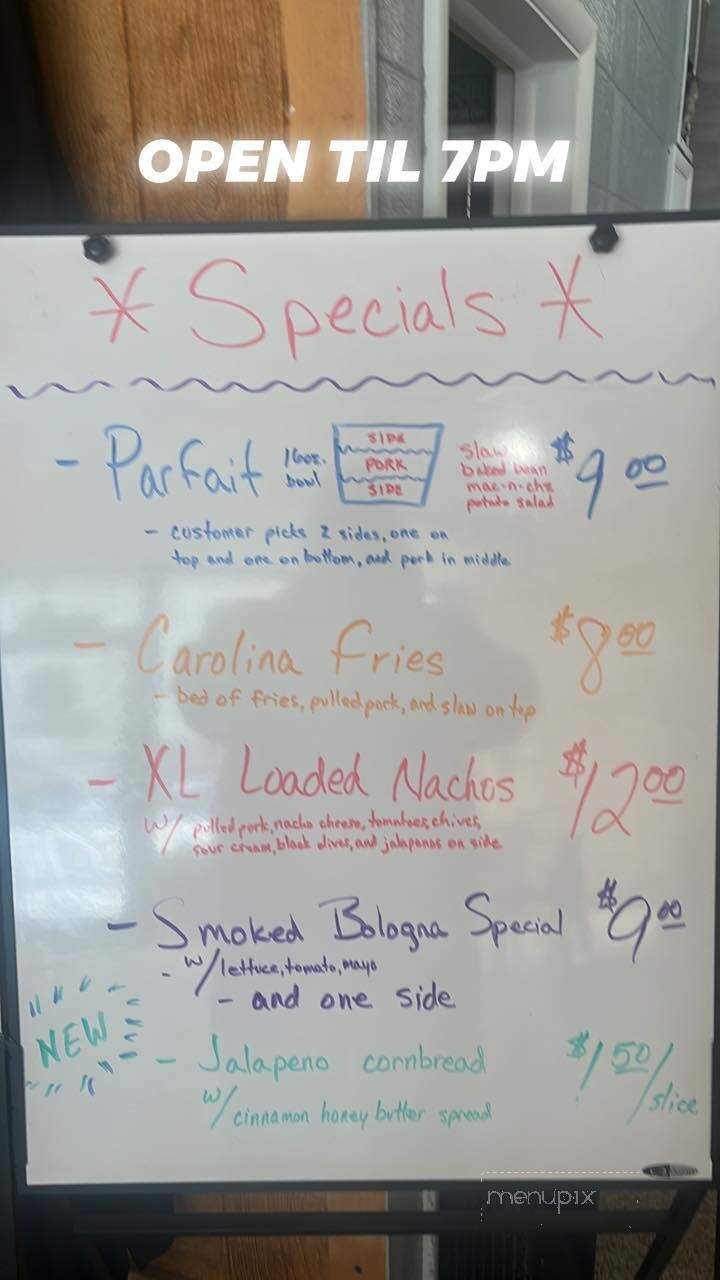 OPEN TIL 7PM
* Specials *
- Parfait 16oz. bowl $9.00
SIDE
PORK
SIDE
slaw
baked bean
mac-n-chz
potato salad
- customer picks 2 sides, one on
top and one on bottom, and pork in middle
- Carolina Fries $8.00
- bed of fries, pulled pork, and slaw on top
- XL Loaded Nachos $12.00
w/ pulled pork, nacho cheese, tomatoes, chives,
sour cream, black olives, and jalapenos on side
- Smoked Bologna Special $9.00
- w/ lettuce, tomato, mayo
- and one side
NEW
- Jalapeno cornbread $1.50/slice
w/ cinnamon honey butter spread
menupix